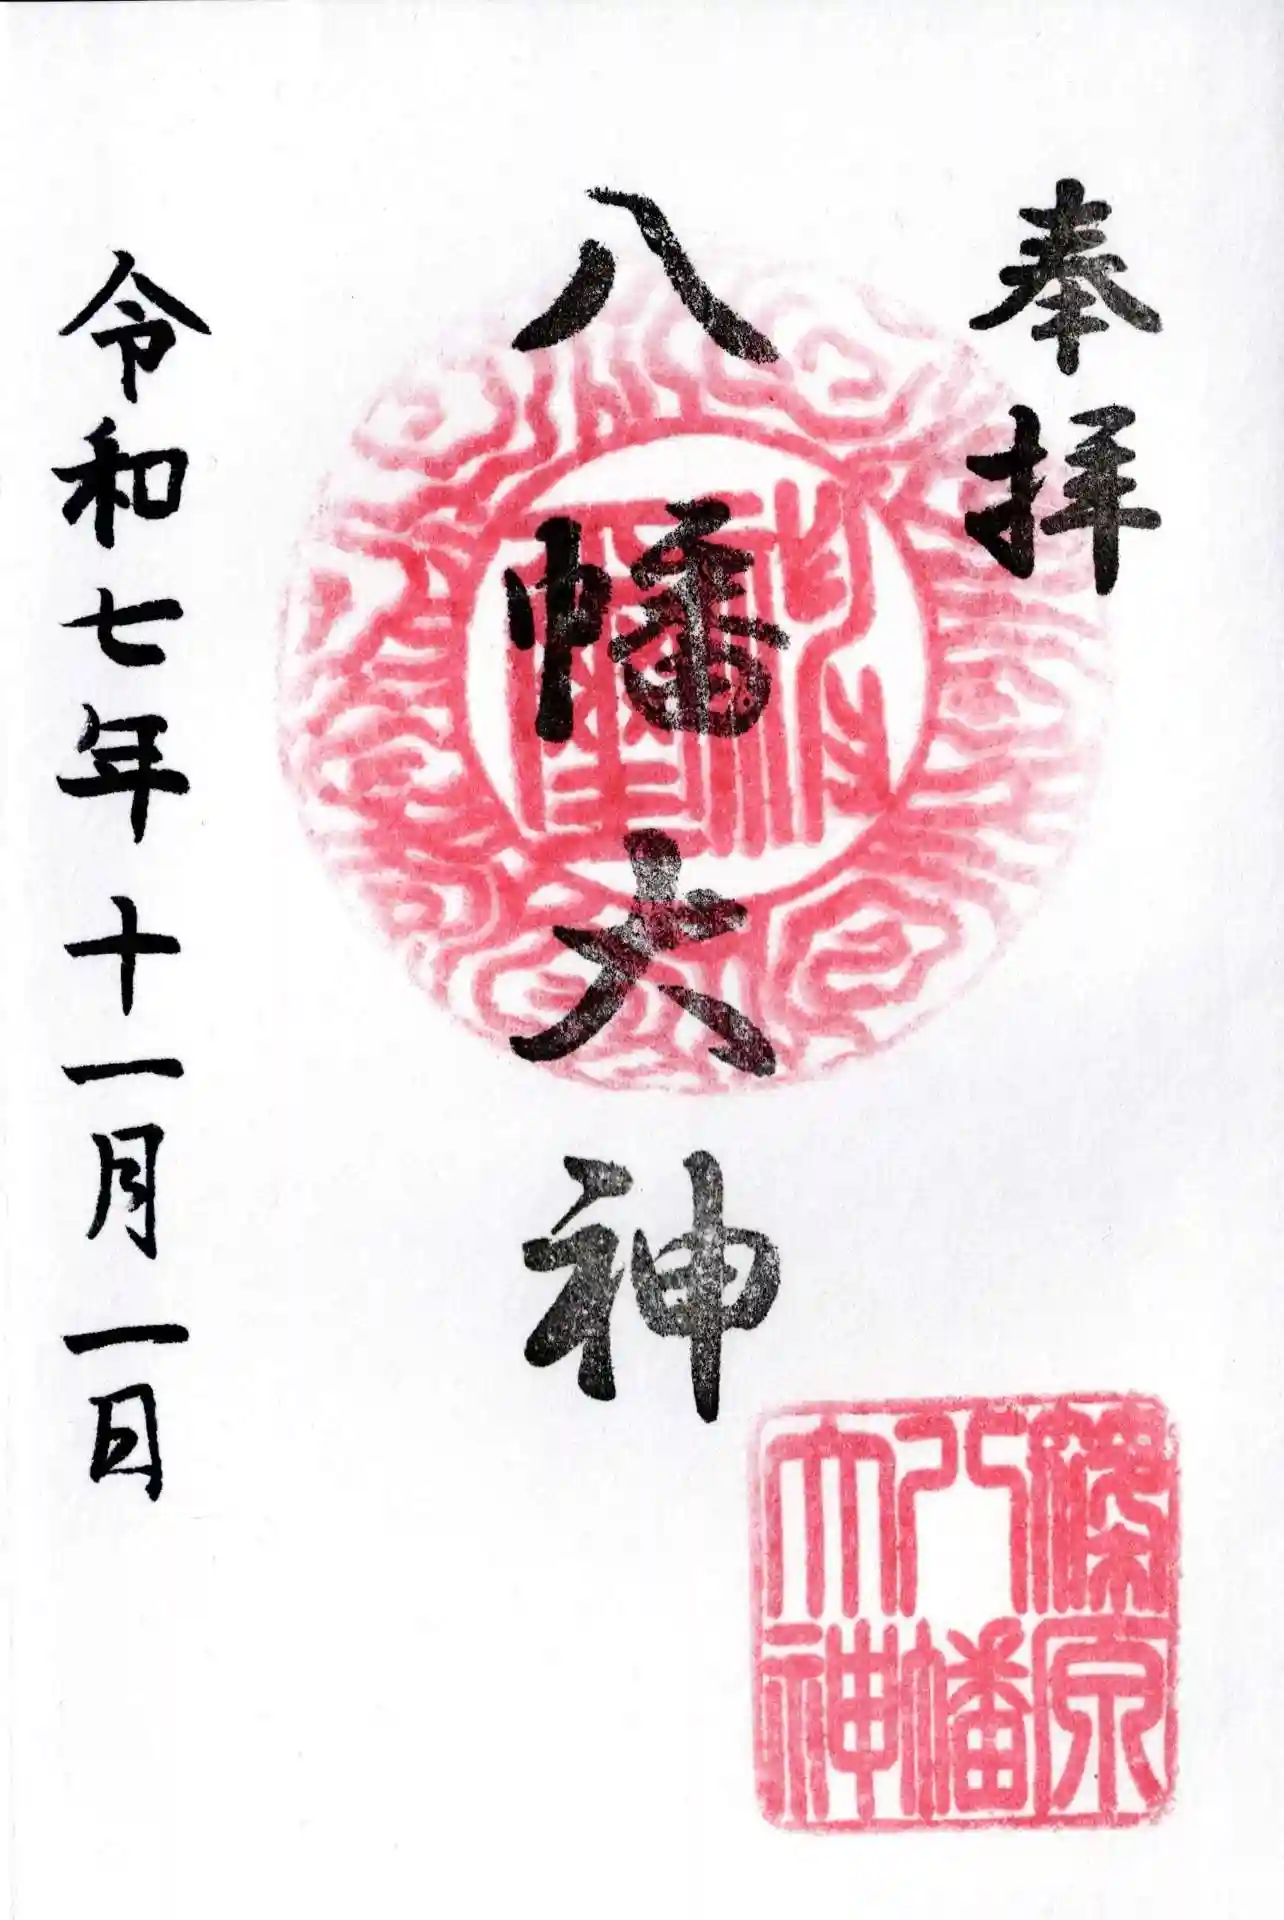 奉拝
八幡大神
令和七年十一月一日
篠原
八幡
大神